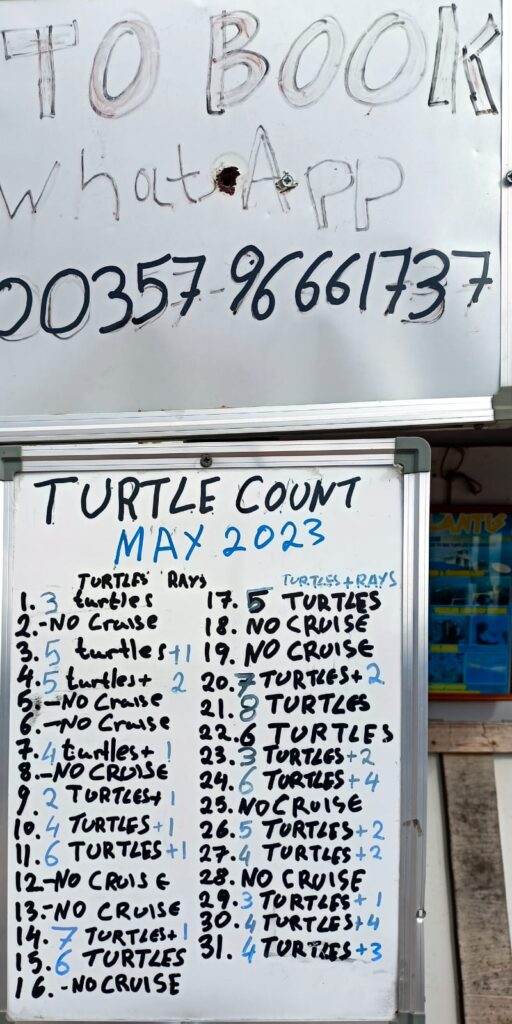 TO BOOK
WhatApp
00357-96661737
TURTLE COUNT
MAY 2023
TURTLES RAYS
1. 3 turtles
2.-NO Cruise
3. 5 turtles+1
4. 5 turtles+ 2
5.-NO Cruise
6.-NO Cruise
7. 4 turtles+ 1
8.-NO CRUISE
9. 2 TURTLES+ 1
10. 4 TURTLES+1
11. 6 TURTLES+1
12-NO CRUISE
13.-NO CRUISE
14. 7 TURTLES+1
15. 6 TURTLES
16.-NO CRUISE
TURTLES+RAYS
17. 5 TURTLES
18. NO CRUISE
19. NO CRUISE
20. 7 TURTLES+2
21. 8 TURTLES
22. 6 TURTLES
23. 3 TURTLES+2
24. 6 TURTLES+4
25. NO CRUISE
26. 5 TURTLES+2
27. 4 TURTLES+2
28. NO CRUISE
29. 3 TURTLES+1
30. 4 TURTLES+4
31. 4 TURTLES+3